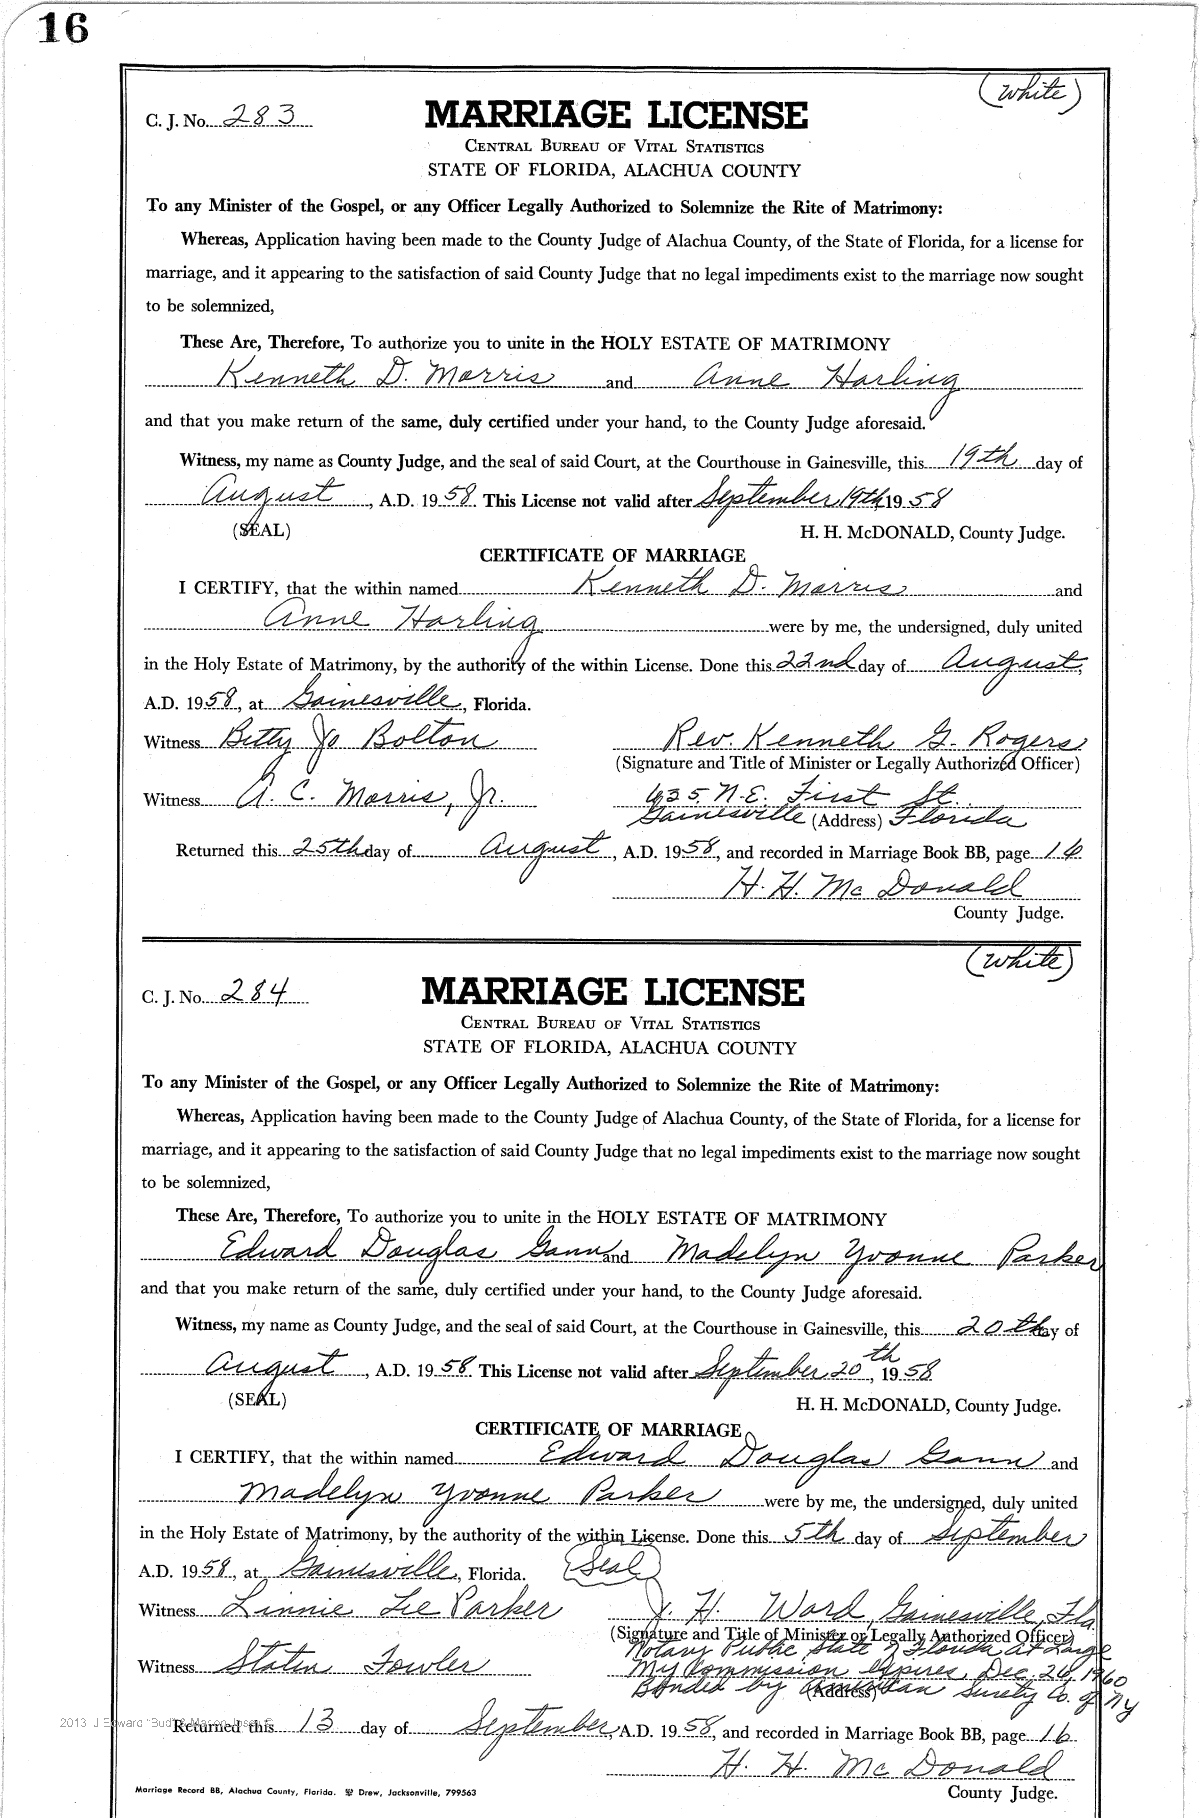 16
(White)
C. J. No. 283
MARRIAGE LICENSE
CENTRAL BUREAU OF VITAL STATISTICS
STATE OF FLORIDA, ALACHUA COUNTY
To any Minister of the Gospel, or any Officer Legally Authorized to Solemnize the Rite of Matrimony:
Whereas, Application having been made to the County Judge of Alachua County, of the State of Florida, for a license for
marriage, and it appearing to the satisfaction of said County Judge that no legal impediments exist to the marriage now sought
to be solemnized,
These Are, Therefore, To authorize you to unite in the HOLY ESTATE OF MATRIMONY
Kenneth D. Morris and Anne Harling
and that you make return of the same, duly certified under your hand, to the County Judge aforesaid.
Witness, my name as County Judge, and the seal of said Court, at the Courthouse in Gainesville, this 19th day of
August, A.D. 1958. This License not valid after September 19th 1958
(SEAL) H. H. McDONALD, County Judge.
CERTIFICATE OF MARRIAGE
I CERTIFY, that the within named Kenneth D. Morris and
Anne Harling were by me, the undersigned, duly united
in the Holy Estate of Matrimony, by the authority of the within License. Done this 22nd day of August,
A.D. 1958, at Gainesville, Florida.
Witness Betty Jo Bolton Rev. Kenneth G. Rogers
(Signature and Title of Minister or Legally Authorized Officer)
Witness A. C. Morris, Jr. 635 N.E. First St.
Gainesville (Address) Florida
Returned this 25th day of August, A.D. 1958, and recorded in Marriage Book BB, page 16
H. H. McDonald
County Judge.
(White)
C. J. No. 284
MARRIAGE LICENSE
CENTRAL BUREAU OF VITAL STATISTICS
STATE OF FLORIDA, ALACHUA COUNTY
To any Minister of the Gospel, or any Officer Legally Authorized to Solemnize the Rite of Matrimony:
Whereas, Application having been made to the County Judge of Alachua County, of the State of Florida, for a license for
marriage, and it appearing to the satisfaction of said County Judge that no legal impediments exist to the marriage now sought
to be solemnized,
These Are, Therefore, To authorize you to unite in the HOLY ESTATE OF MATRIMONY
Edward Douglas Gann and Madelyn Yvonne Parker
and that you make return of the same, duly certified under your hand, to the County Judge aforesaid.
Witness, my name as County Judge, and the seal of said Court, at the Courthouse in Gainesville, this 20th day of
August, A.D. 1958. This License not valid after September 20th, 1958
(SEAL) H. H. McDONALD, County Judge.
CERTIFICATE OF MARRIAGE
I CERTIFY, that the within named Edward Douglas Gann and
Madelyn Yvonne Parker were by me, the undersigned, duly united
in the Holy Estate of Matrimony, by the authority of the within License. Done this 5th day of September
A.D. 1958, at Gainesville, Florida. (Seal)
Witness Linnie Lee Parker H. Ward, Gainesville, Fla.
(Signature and Title of Minister or Legally Authorized Officer)
Notary Public State of Florida at Large
Witness Staten Fowler My Commission expires Dec. 26, 1960
Bonded by American Surety Co. of NY
(Address)
2013 J Edward "Bud"
Returned this 13 day of September, A.D. 1958, and recorded in Marriage Book BB, page 16
H. H. McDonald
Marriage Record BB, Alachua County, Florida. Drew, Jacksonville, 799563 County Judge.